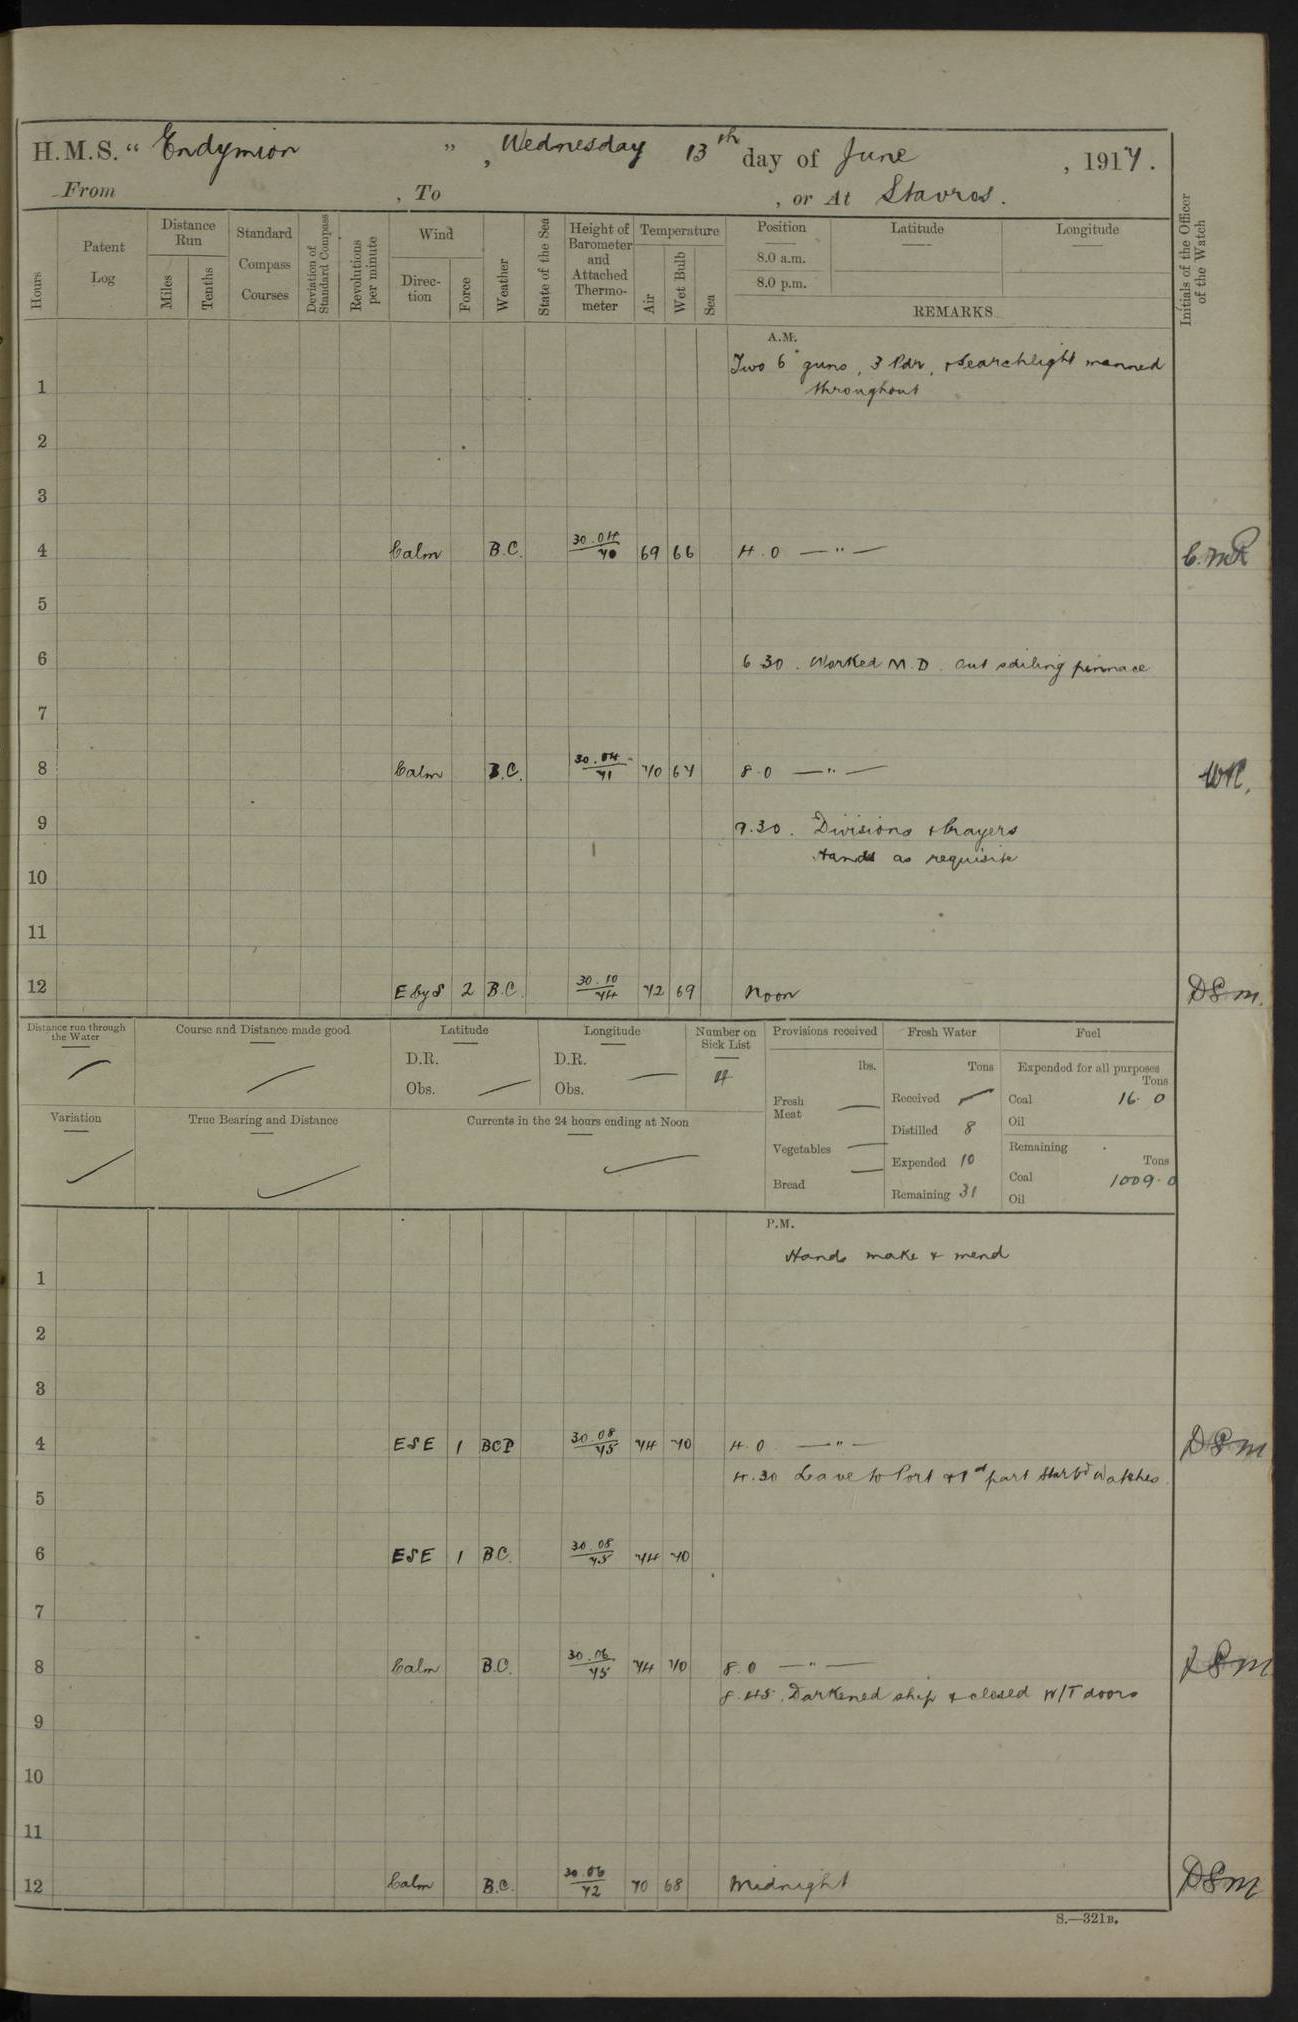 H.M.S. " Endymion ", Wednesday 13th day of June, 1917.
From , To , or At Stavros.
Hours
Patent Log
Distance Run
Miles
Tenths
Standard Compass Courses
Deviation of Standard Compass
Revolutions per minute
Wind
Direction
Force
Weather
State of the Sea
Height of Barometer and Attached Thermometer
Temperature
Air
Wet Bulb
Sea
Position
8.0 a.m.
8.0 p.m.
Latitude
Longitude
REMARKS
Initials of the Officer of the Watch
A.M.
Two 6" guns, 3 Pdr, & Searchlight manned
1 throughout
2
3
4 Calm B.C. 30.04/70 69 66 4.0 — " —
5
6 6 30. Worked M.D. Out sailing pinnace
7
8 Calm B.C. 30.04/71 70 67 8.0 — " — WR.
9 9.30. Divisions & Prayers
Hands as requisite
10
11
12 E by S 2 B.C. 30.10/74 72 69 Noon DSM.
Distance run through the Water
Course and Distance made good
Latitude
D.R.
Obs.
Longitude
D.R.
Obs.
Number on Sick List
4
Provisions received
lbs.
Fresh Meat
Vegetables
Bread
Fresh Water
Tons
Received
Distilled 8
Expended 10
Remaining 31
Fuel
Expended for all purposes
Tons
Coal 16.0
Oil
Remaining
Tons
Coal 1009.0
Oil
Variation
True Bearing and Distance
Currents in the 24 hours ending at Noon
P.M.
Hands make & mend
1
2
3
4 ESE 1 BCP 30.08/75 74 70 4.0 — " — DSM
4.30 Leave to Port & 1st part Starbd Watches.
5
6 ESE 1 BC. 30.08/75 74 70
7
8 Calm B.C. 30.06/75 74 70 8.0 — " — DSM
8.45. Darkened ship & closed W/T doors
9
10
11
12 Calm B.C. 30.06/72 70 68 Midnight DSM
S.—321B.